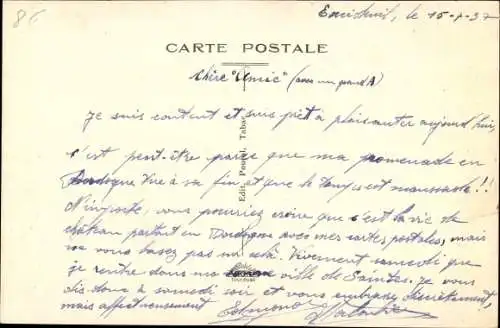 86
Excideuil, le 15-7-37
CARTE POSTALE
Chère "Amie" (avec un grand A)
Je suis content et suis prêt à plaisanter aujourd'hui
c'est peut-être parce que ma promenade en
Dordogne tire à sa fin et que le temps est maussade!!
N'importe, vous pourriez croire que c'est la vie de
château partout en Dordogne avec mes cartes postales, mais
ne vous basez pas sur cela. Vivement samedi que
je rentre dans ma ville de Saintes. Je vous
dis donc à samedi soir et vous embrasse discrètement,
mais affectueusement
Edit. Peugel, Tabac